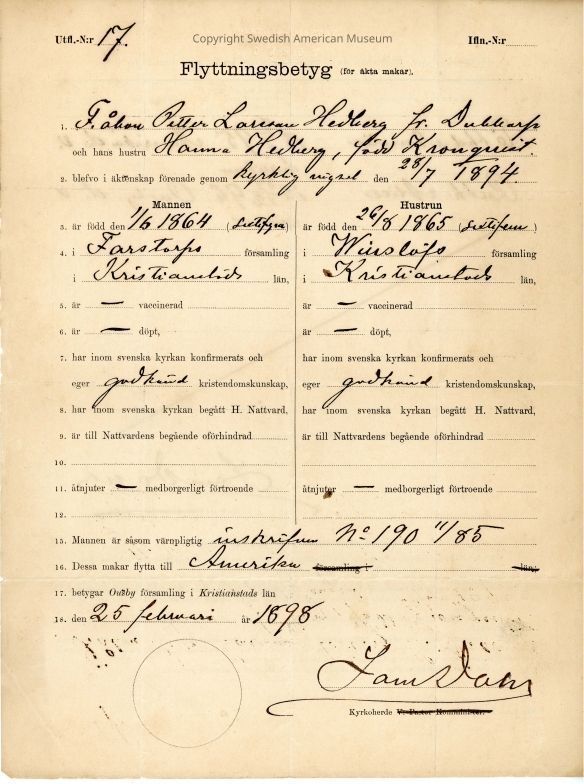 Copyright Swedish American Museum
Utfl.-N:r 17. Ifln.-N:r
Flyttningsbetyg (för äkta makar).
1. F. åbon Petter Larsson Hedberg fr. Dubbarp
och hans hustru Hanna Hedberg, född Kronquist.
2. blefvo i äktenskap förenade genom kyrklig vigsel den 28/7 1894
Mannen
3. är född den 1/6 1864 (sextifyra)
4. i Farstorps församling
i Kristianstads län,
5. är — vaccinerad
6. är — döpt,
7. har inom svenska kyrkan konfirmerats och
eger godkänd kristendomskunskap,
8. har inom svenska kyrkan begått H. Nattvard,
9. är till Nattvardens begående oförhindrad
10.
11. åtnjuter — medborgerligt förtroende
12.
Hustrun
är född den 26/8 1865 (sextifem)
i Winslöfs församling
i Kristianstads län,
är — vaccinerad
är — döpt,
har inom svenska kyrkan konfirmerats och
eger godkänd kristendomskunskap,
har inom svenska kyrkan begått H. Nattvard,
är till Nattvardens begående oförhindrad
åtnjuter — medborgerligt förtroende
15. Mannen är såsom värnpligtig inskrifven No 190 11/85
16. Dessa makar flytta till Amerika församling i län,
17. betygar Ousby församling i Kristianstads län
18. den 25 februari år 1898
Kyrkoherde V. Pastor Komminister.